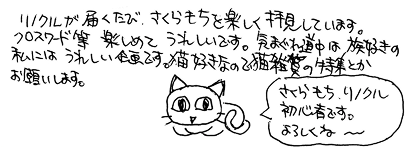 リノクルが届くたび、さくらもちを楽しく拝見しています。
クロスワード等 楽しめて うれしいです。気まぐれ道中は 旅好きの
私には うれしい企画です。猫好きなので猫雑貨の特集とか
お願いします。
さくらもち、リノクル
初心者です。
よろしくね〜